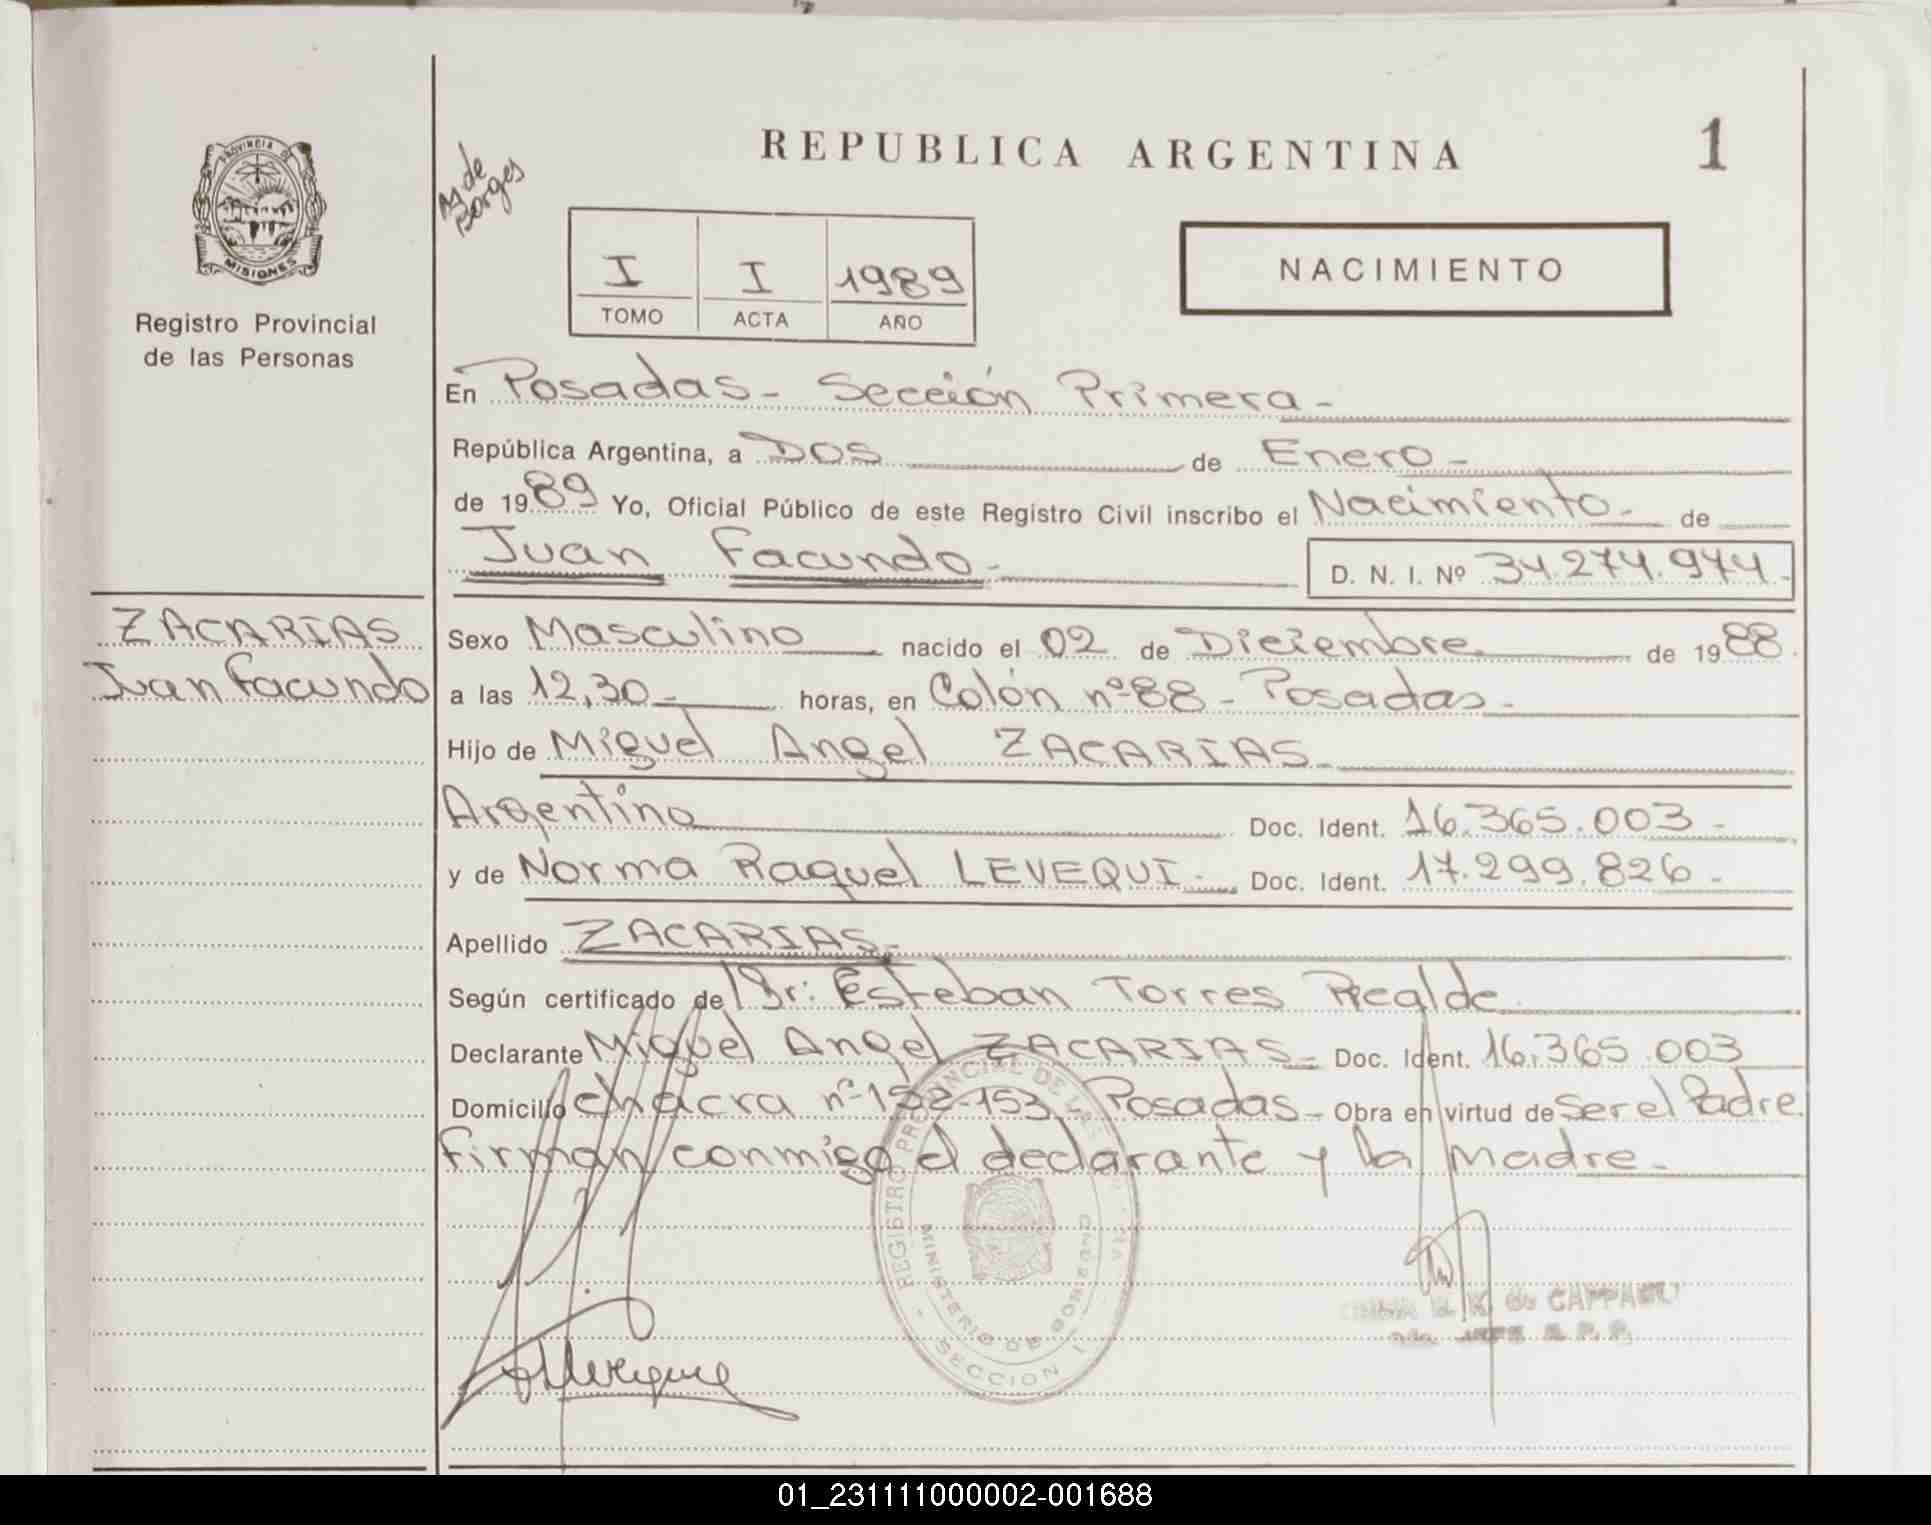 REPUBLICA ARGENTINA
1
PROVINCIA DE
MISIONES
Registro Provincial
de las Personas
de
Borges
I I 1989
TOMO ACTA AÑO
NACIMIENTO
En Posadas - Sección Primera -
República Argentina, a Dos de Enero -
de 1989 Yo, Oficial Público de este Registro Civil inscribo el Nacimiento - de
Juan Facundo - D. N. I. Nº 34.274.974 -
ZACARIAS
Juan Facundo
Sexo Masculino nacido el 02 de Diciembre de 1988.
a las 12,30 - horas, en Colón nº 88 - Posadas -
Hijo de Miguel Angel ZACARIAS -
Argentino Doc. Ident. 16.365.003 -
y de Norma Raquel LEVEQUI - Doc. Ident. 17.299.826 -
Apellido ZACARIAS -
Según certificado de Dr: Esteban Torres
Declarante Miguel Angel ZACARIAS - Doc. Ident. 16.365.003
Domicilio chacra nº 152-153 - Posadas - Obra en virtud de Ser el Padre.
Firman conmigo el declarante y la madre -
REGISTRO PROVINCIAL DE LAS
MINISTERIO DE GOBIERNO
SECCION I
de CAPPA
01_231111000002-001688